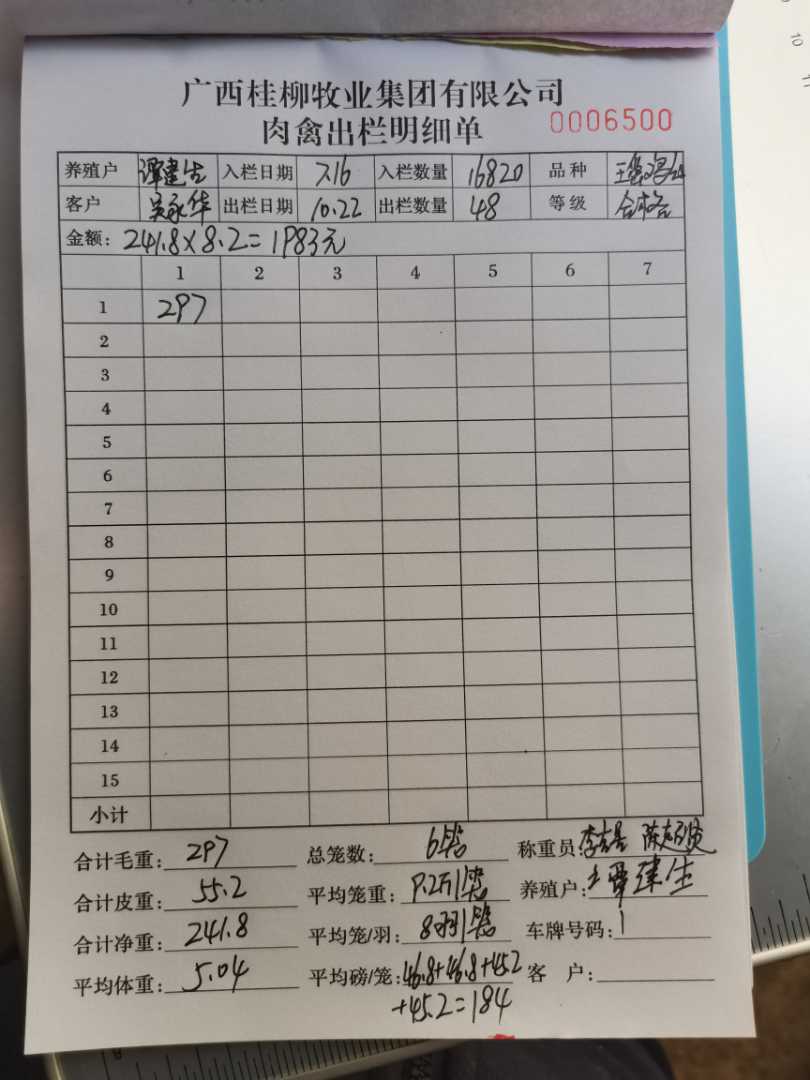 广西桂柳牧业集团有限公司
肉禽出栏明细单 0006500
养殖户 谭建生 入栏日期 7.16 入栏数量 16820 品种
客户 吴永华 出栏日期 10.22 出栏数量 48 等级 合格
金额: 241.8×8.2=1983元
1 2 3 4 5 6 7
1 297
2
3
4
5
6
7
8
9
10
11
12
13
14
15
小计
合计毛重: 297 总笼数: 6笼 称重员:
合计皮重: 55.2 平均笼重: 9.2斤/笼 养殖户: 谭建生
合计净重: 241.8 平均笼/羽: 8羽/笼 车牌号码:
平均体重: 5.04 平均磅/笼: 46.8+46.8+45.2 客 户:
+45.2=184